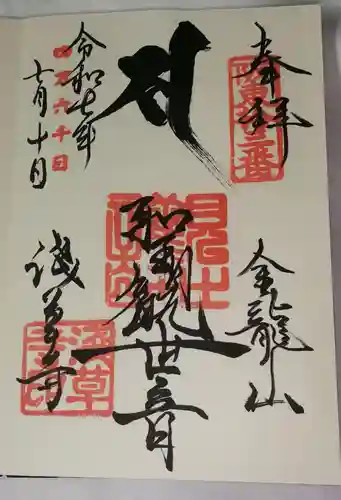 奉拝
坂東十三番
金龍山
聖観世音
令和七年
四万六千日
七月十日
浅草寺
淺草寺印